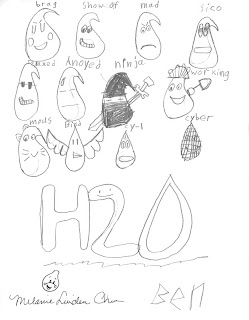 brag show-of mad sico
mixed Anoyed ninja working
mous Bird cy-1 cyber
H2O
Melanie Linden Chan
Ben